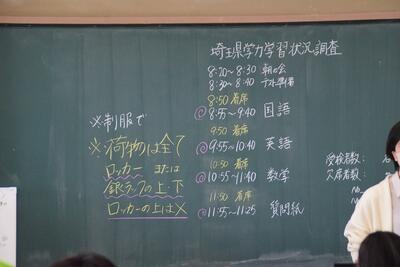 埼玉県学力学習状況調査
8:20〜8:30 朝の会
8:30〜8:40 テスト準備
8:50 着席
8:55〜9:40 国語
9:50 着席
9:55〜10:40 英語
10:50 着席
10:55〜11:40 数学
11:50 着席
11:55〜11:25 質問紙
※制服で
※荷物は全て
ロッカー または
銀ラックの上・下
ロッカーの上は×
受検者数:
欠席者数: